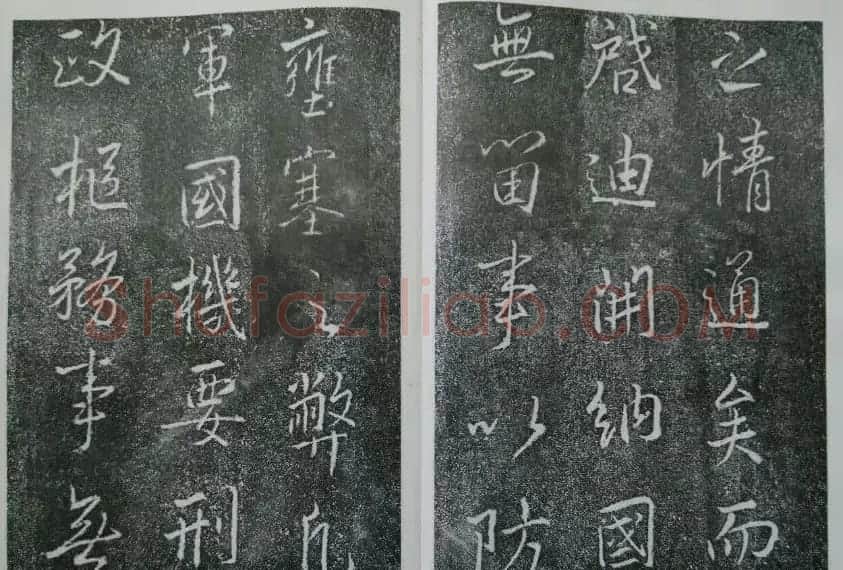 之情通矣而
啟迪開納國
無留事以防
壅塞之弊凡
軍國機要刑
政樞務事無
Shufaziliao.COM